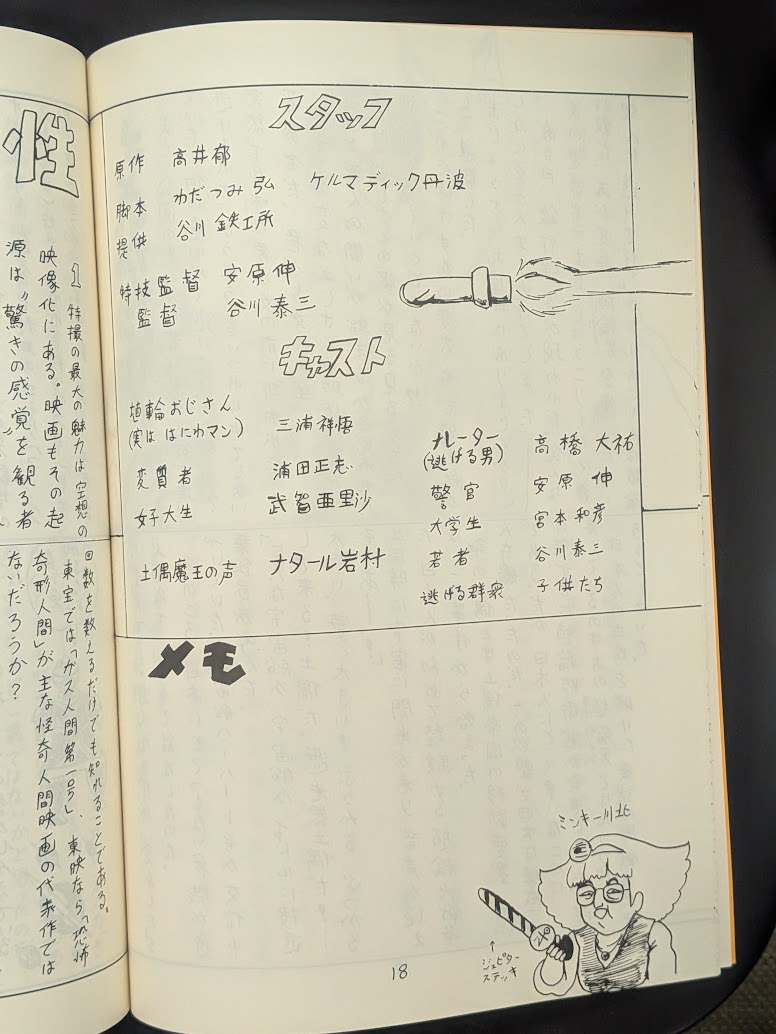 スタッフ
原作 高井郁
脚本 わだつみ弘 ケルマディック丹波
提供 谷川鉄工所
特技監督 安原伸
監督 谷川泰三
キャスト
埴輪おじさん
(実は はにわマン) 三浦祥悟
変質者 浦田正志
女子大生 武智亜里沙
土偶魔王の声 ナタール岩村
ナレーター
(逃げる男) 高橋大祐
警官 安原伸
大学生 宮本和彦
若者 谷川泰三
逃げる群衆 子供たち
メモ
ミンキー川北
↑
ジュピター
ステッキ
18
性
1 特撮の最大の魅力は空想の
映像化にある。映画もその起
源は〝驚きの感覚を観る者
回数を数えるだけでも知れることである。
東宝では「ガス人間第一号」、東映なら「恐怖
奇形人間」が主な怪奇人間映画の代表作では
ないだろうか?